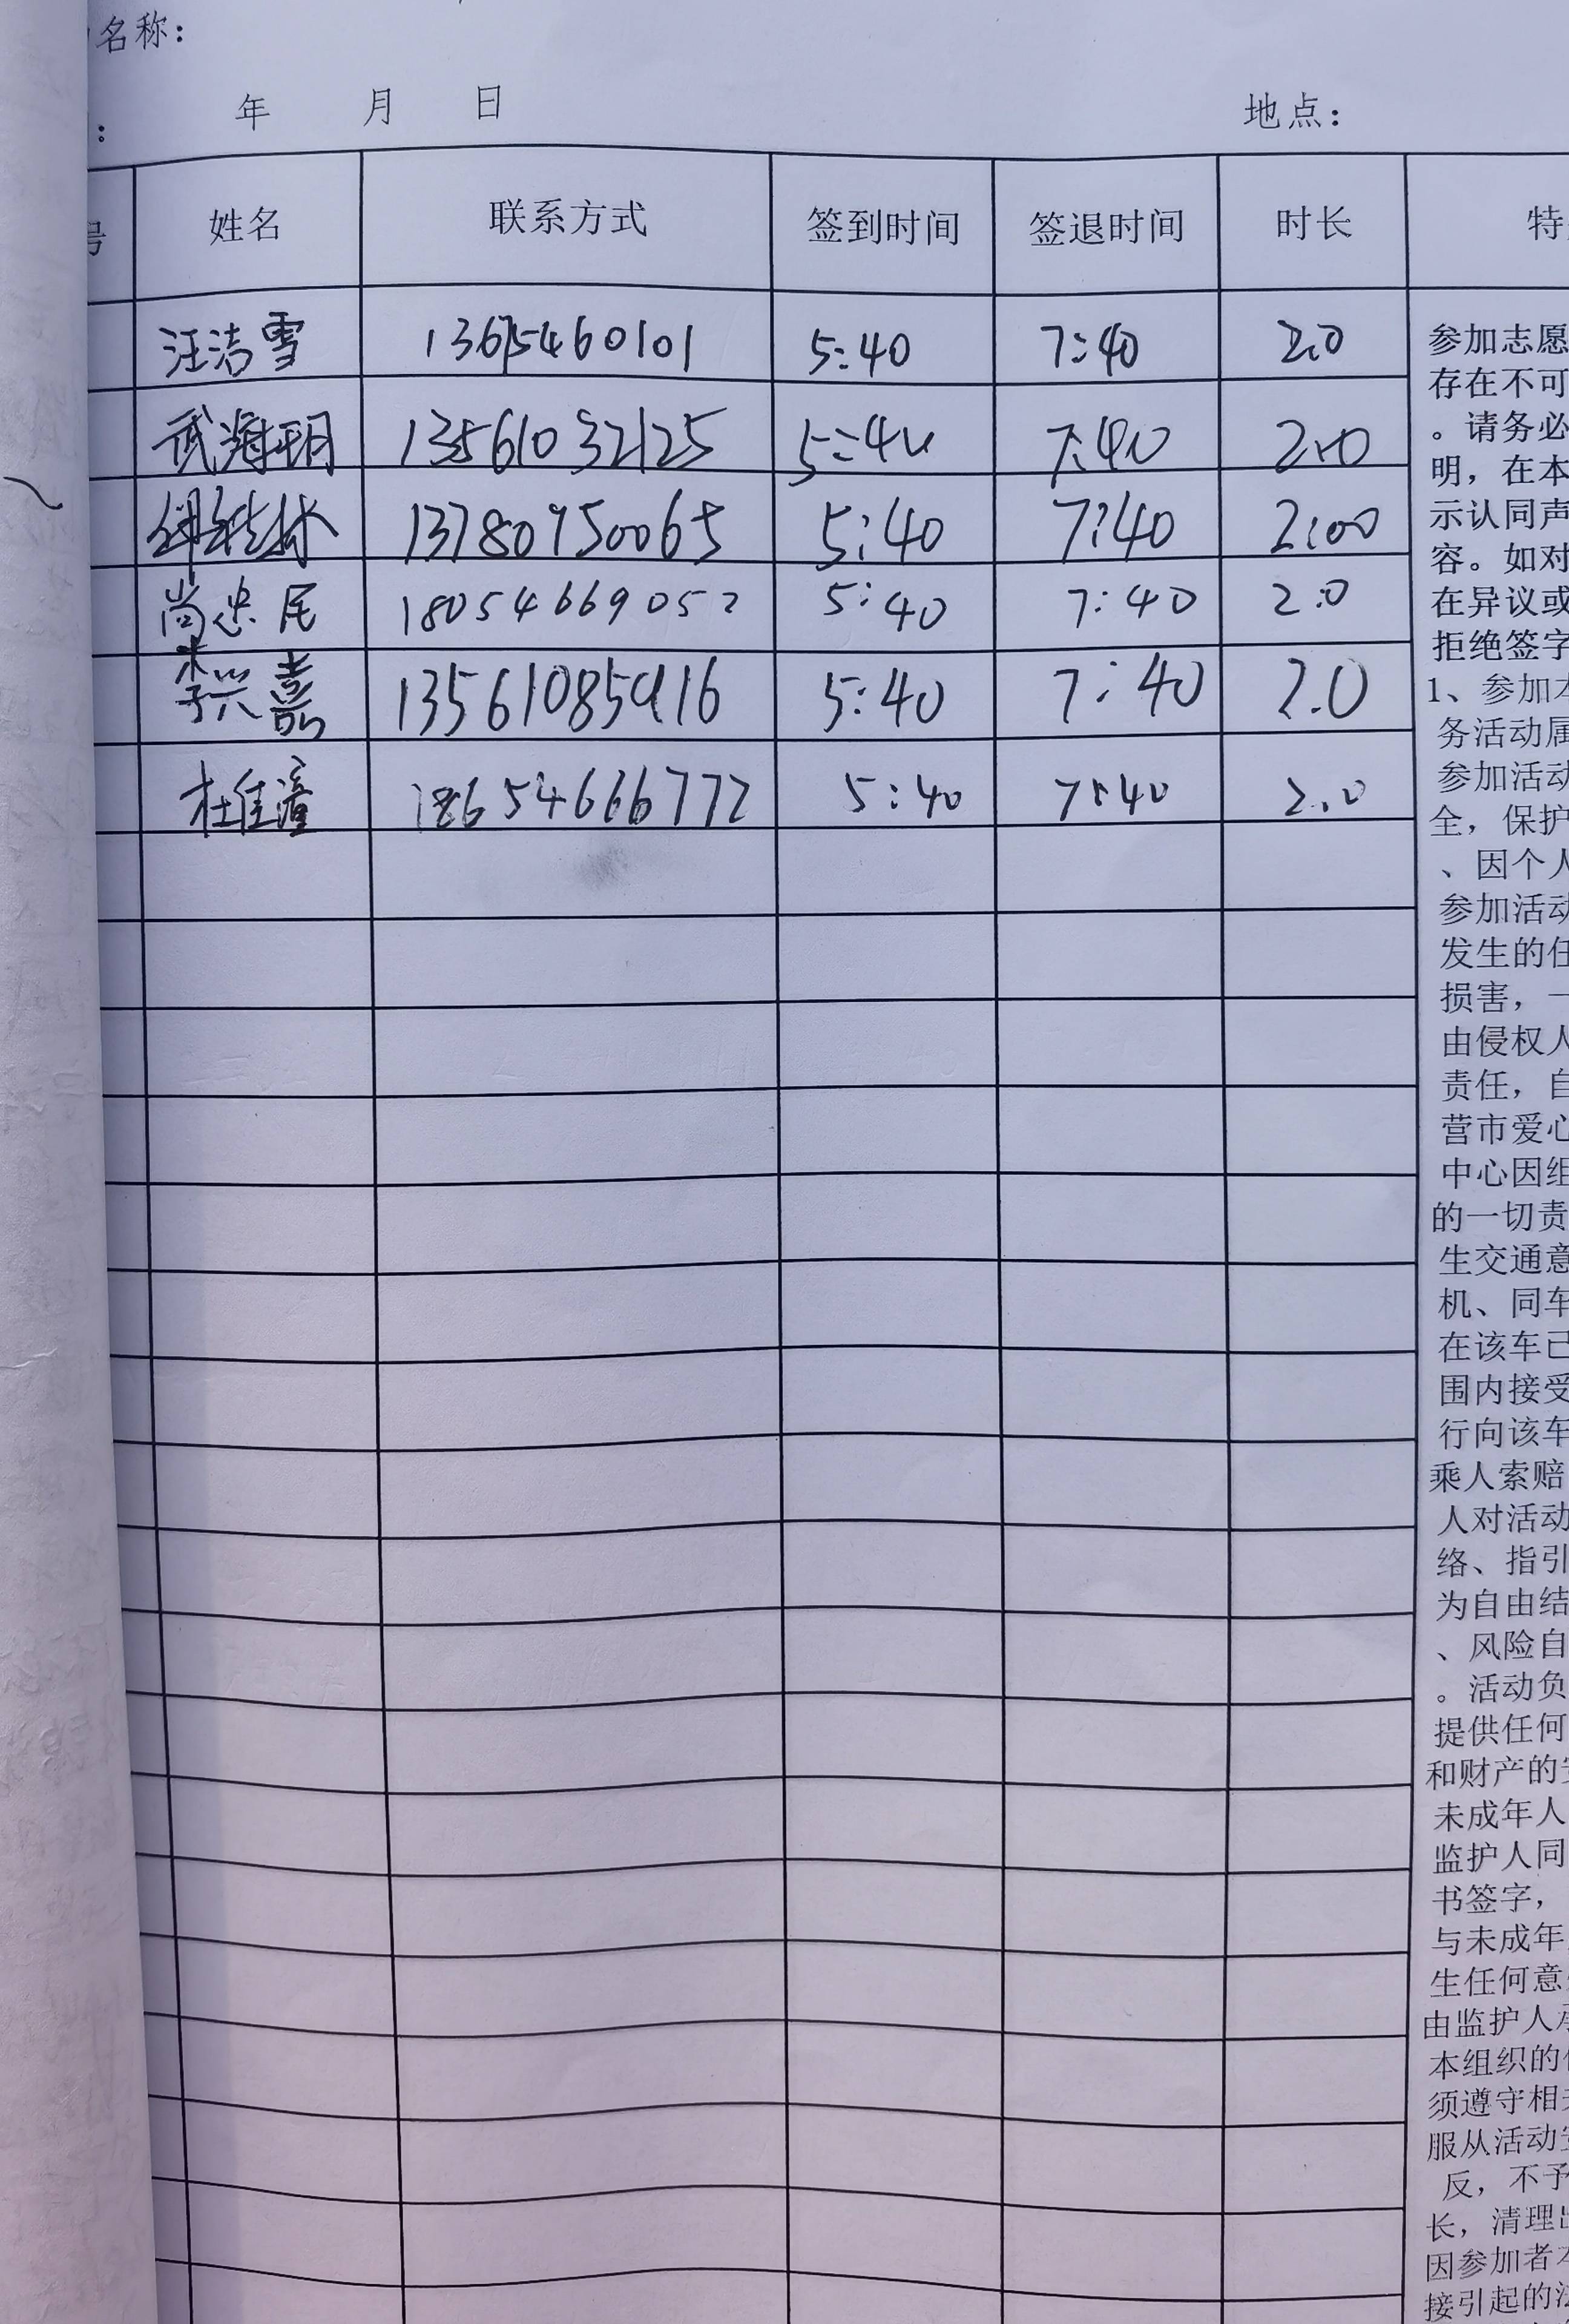 名称：
： 年 月 日 地点：
号 姓名 联系方式 签到时间 签退时间 时长 特
汪洁雪 13675460101 5:40 7:40 2.0
武海玥 13561032125 5:40 7:40 2.0
13780750065 5:40 7:40 2:00
尚忠民 18054669052 5:40 7:40 2.0
李兴嘉 13561085916 5:40 7:40 2.0
杜佳潼 18654666772 5:40 7:40 2.0
参加志愿
存在不可
。请务必
明，在本
示认同声
容。如对
在异议或
拒绝签字
1、参加本
务活动属
参加活动
全，保护
、因个人
参加活动
发生的任
损害，一
由侵权人
责任，自
营市爱心
中心因组
的一切责
生交通意
机、同车
在该车已
围内接受
行向该车
乘人索赔
人对活动
络、指引
为自由结
、风险自
。活动负
提供任何
和财产的安
未成年人
监护人同
书签字，
与未成年
生任何意
由监护人承
本组织的
须遵守相关
服从活动安
反，不予
长，清理出
因参加者本
接引起的法